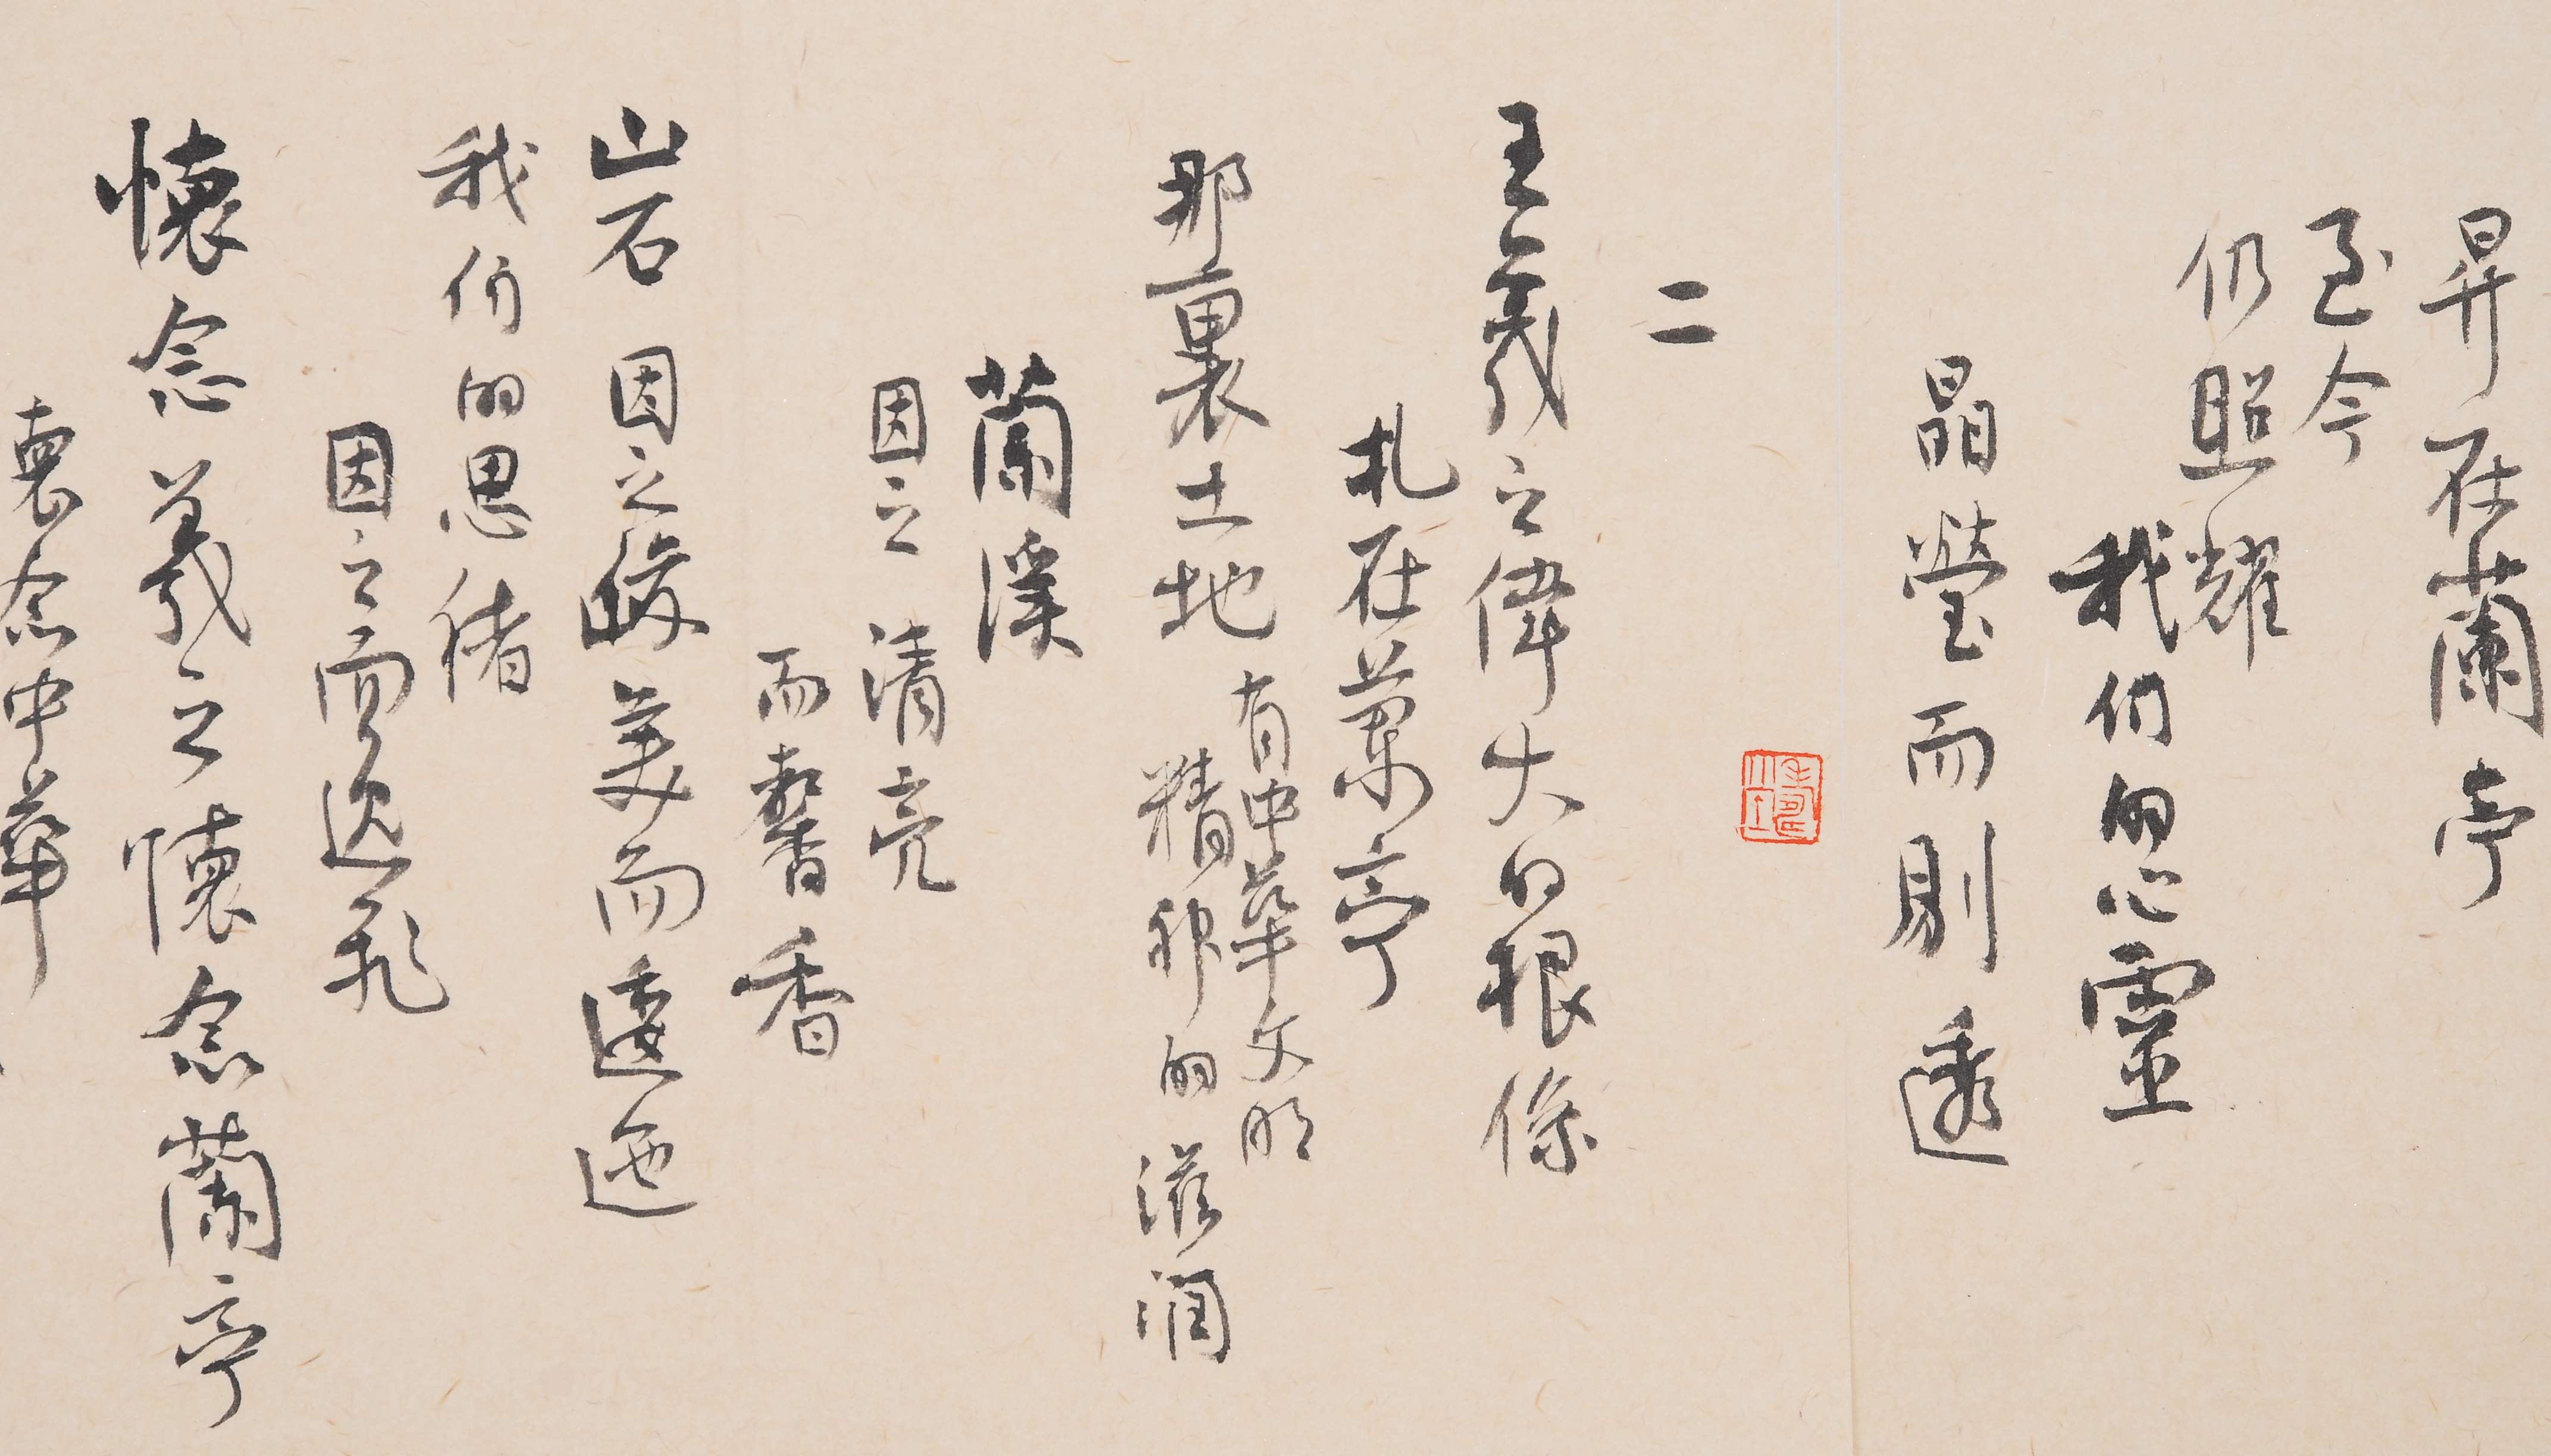 昇在蘭亭
至今
仍照耀
我们的心靈
晶瑩而剔透
二
王羲之偉大的根條
札在蘭亭
那裏土地有中華文明
精神的滋润
蘭溪
因之清亮
而馨香
山石因之峻美而逶迤
我们的思绪
因之而逸飛
懷念羲之懷念蘭亭
懷念中華